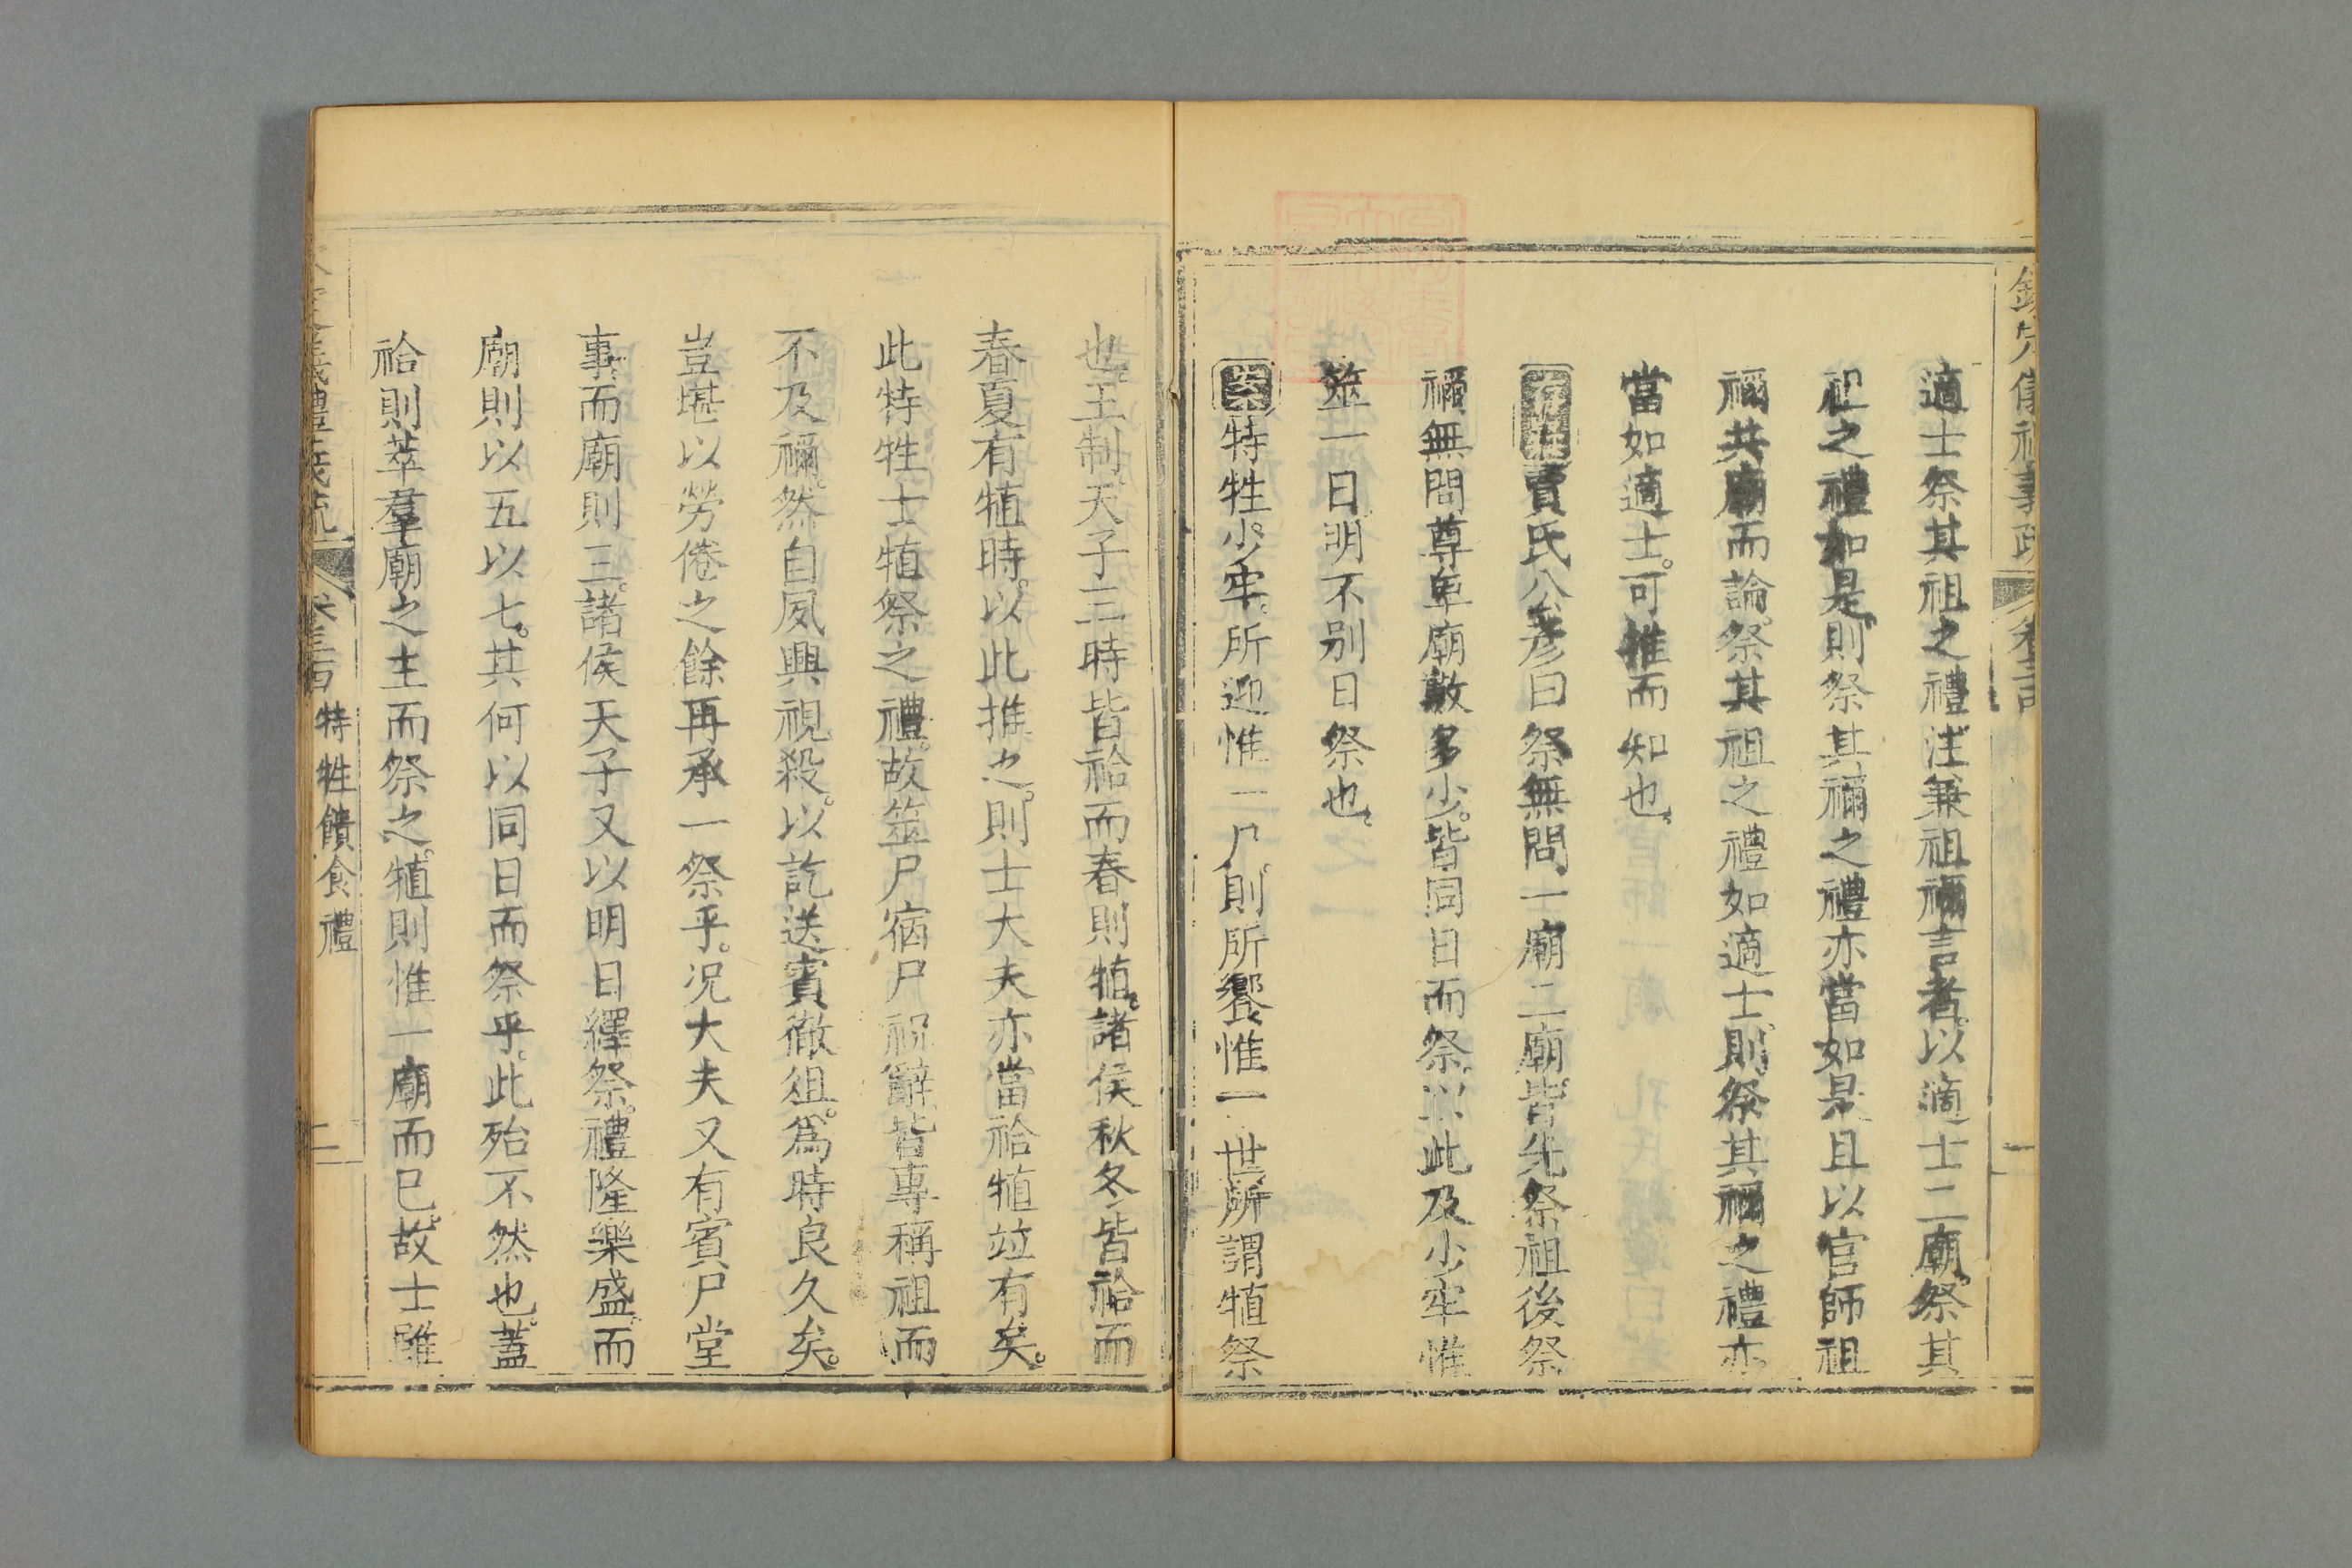 適士祭其祖之禮注兼祖禰言者以適士二廟祭其
祖之禮如是則祭其禰之禮亦當如是且以官師祖
禰共廟而論祭其祖之禮如適士則祭其禰之禮亦
當如適士可推而知也
賈氏公彦曰祭無問一廟二廟皆先祭祖後祭
禰無問尊卑廟數多少皆同日而祭以此及少牢惟
筮一日明不别日祭也
案特牲少牢所迎惟一尸則所饗惟一世所謂犆祭
也王制天子三時皆祫而春則犆諸侯秋冬皆祫而
春夏有犆時以此推之則士大夫亦當祫犆竝有矣
此特牲士犆祭之禮故筮尸宿尸祝辭皆專稱祖而
不及禰然自夙興視殺以訖送賓徹俎為時良久矣
豈堪以勞倦之餘再承一祭乎况大夫又有賓尸堂
事而廟則三諸侯天子又以明日繹祭禮隆樂盛而
廟則以五以七其何以同日而祭乎此殆不然也蓋
祫則萃羣廟之主而祭之犆則惟一廟而已故士雖
特牲饋食禮
二